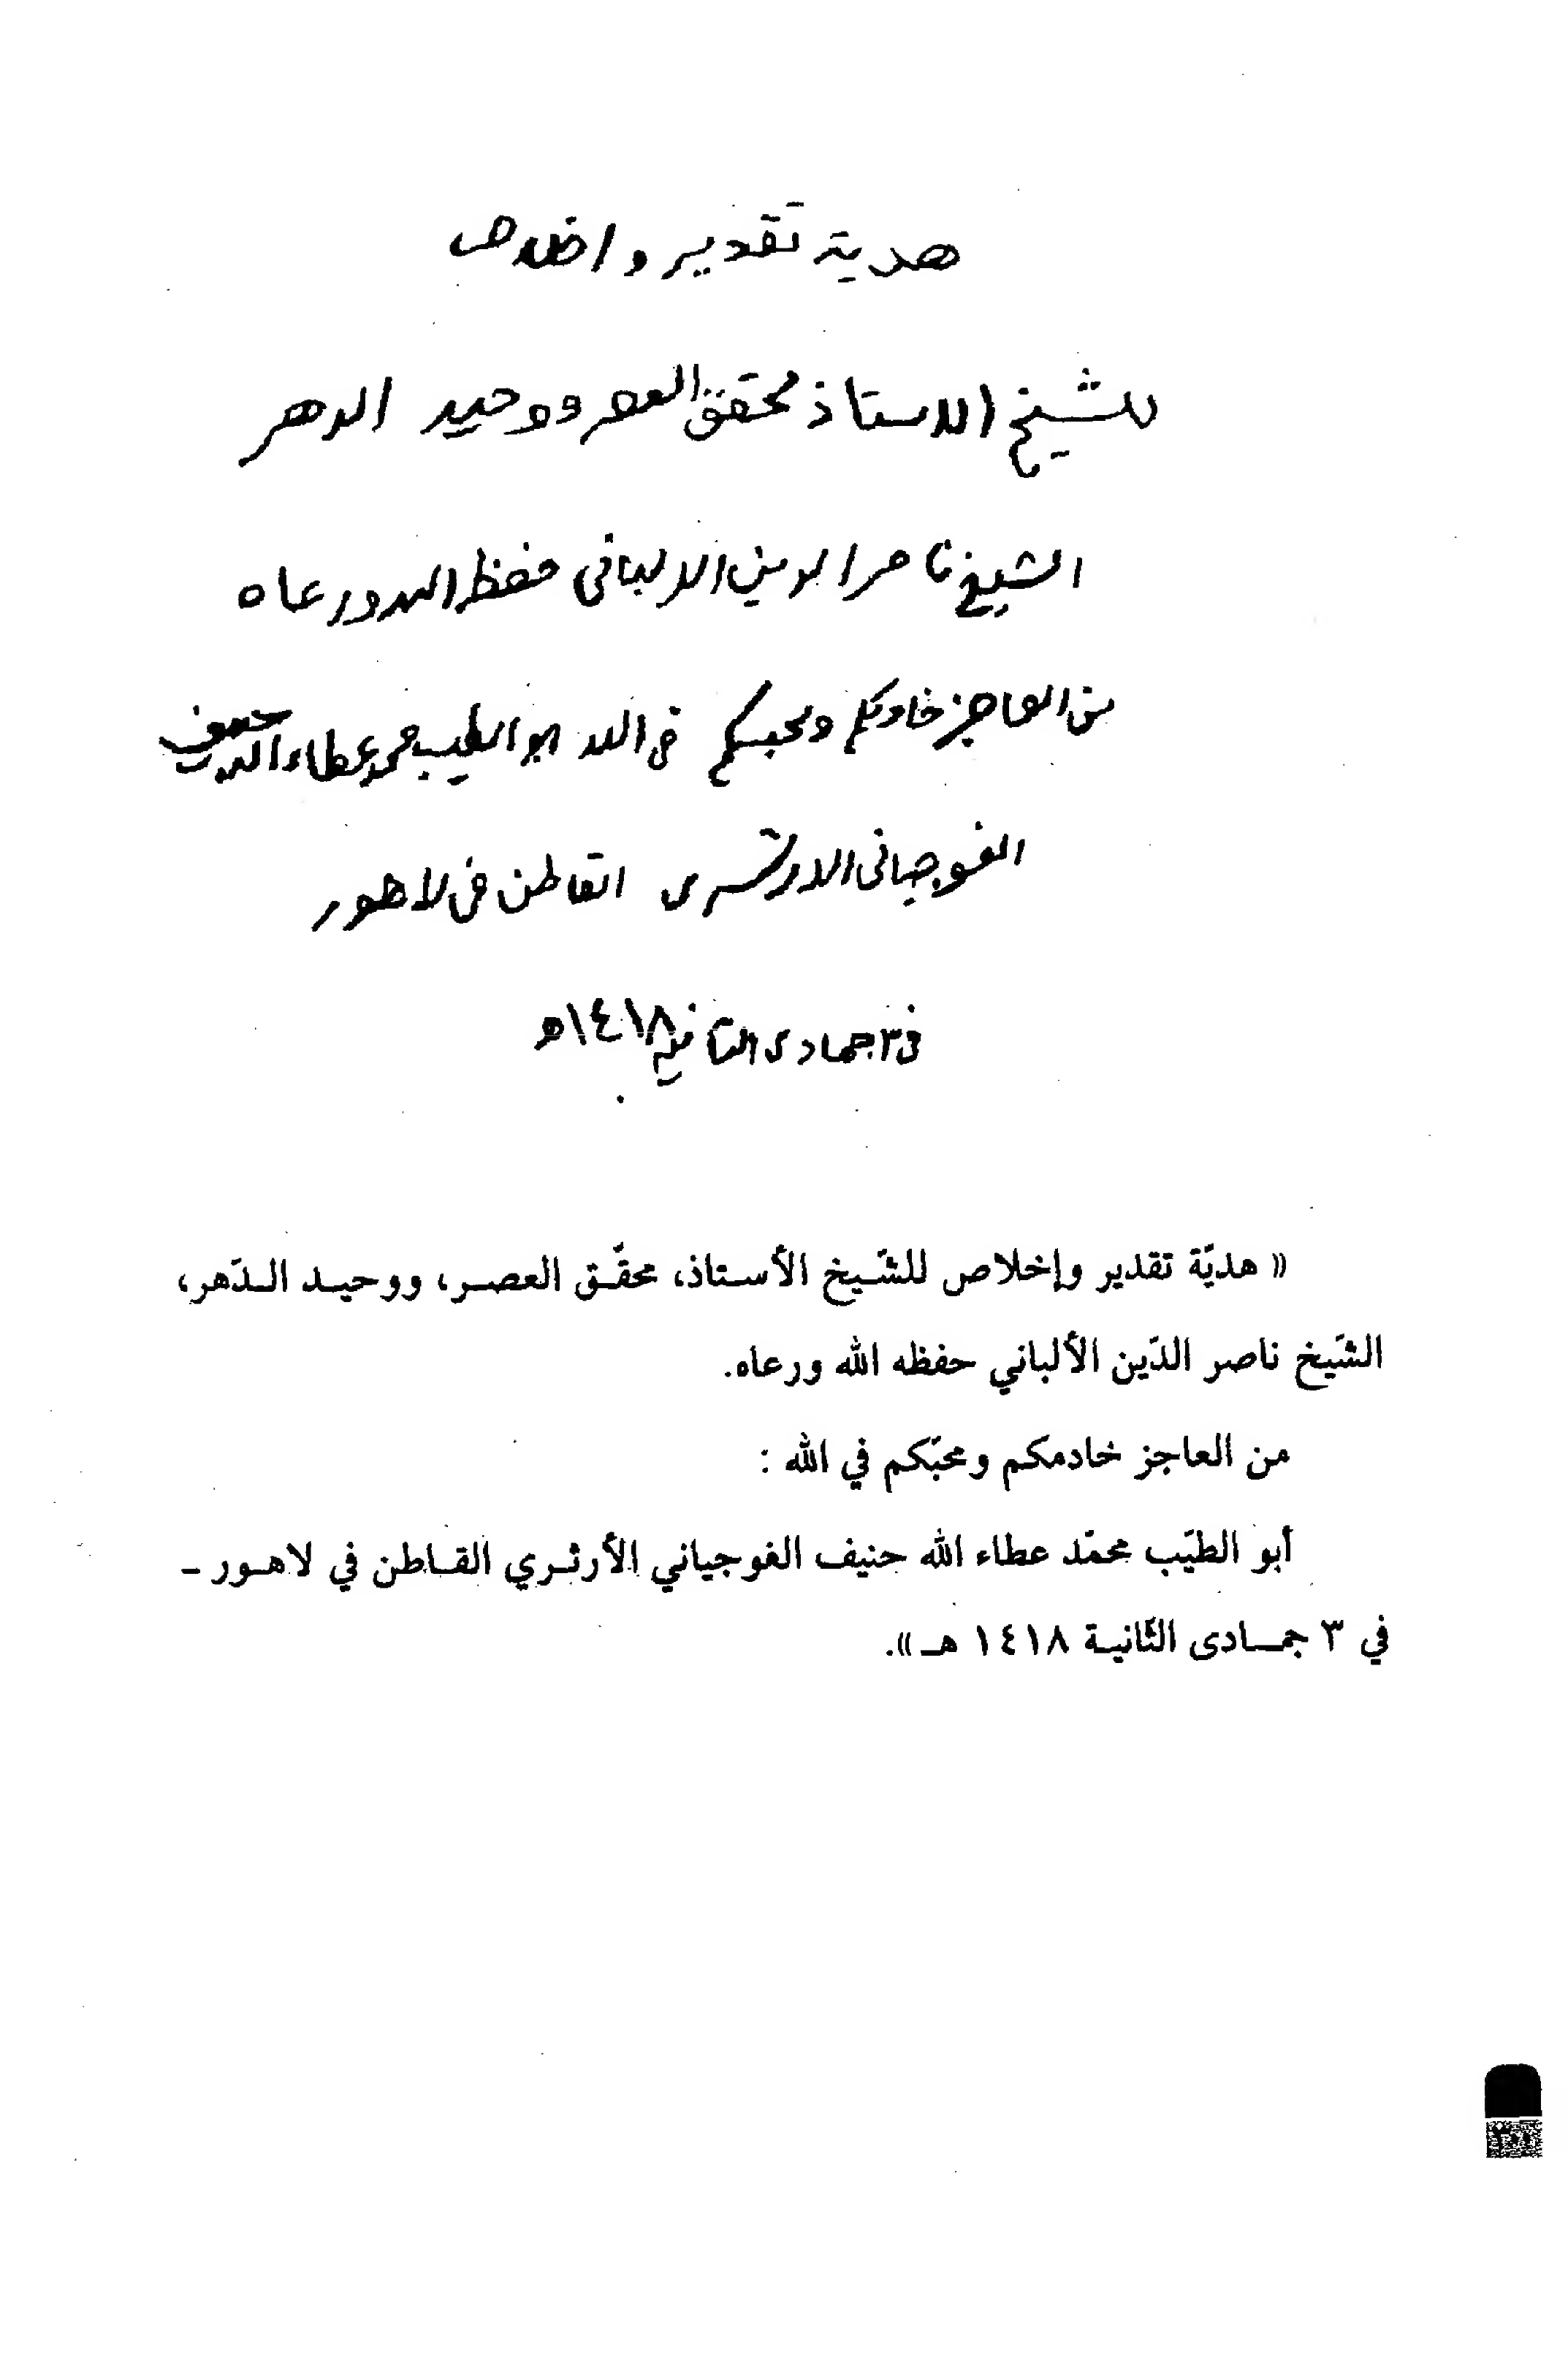 هدية تقدير و اخلاص
للشيخ الاستاذ محقق العصر ووحيد الدهر
الشيخ ناصر الدين الالبانى حفظه الله ورعاه
من العاجز خادمكم ومحبكم فى الله ابو الطيب محمد عطاء الله حنيف
الفوجيانى القاطن فى لاهور
فى ٣ جمادى الثانية ١٤١٨ھ
(( هديّة تقدير وإخلاص للشّيخ الأستاذ، محقّق العصر، ووحيد الدّهر،
الشّيخ ناصر الدّين الألباني حفظه الله ورعاه.
من العاجز خادمكم ومحبّكم في الله :
أبو الطيّب محمّد عطاء الله حنيف الفوجياني الأرثري القاطن في لاهور -
في ٣ جمادى الثّانية ١٤١٨ هـ )).